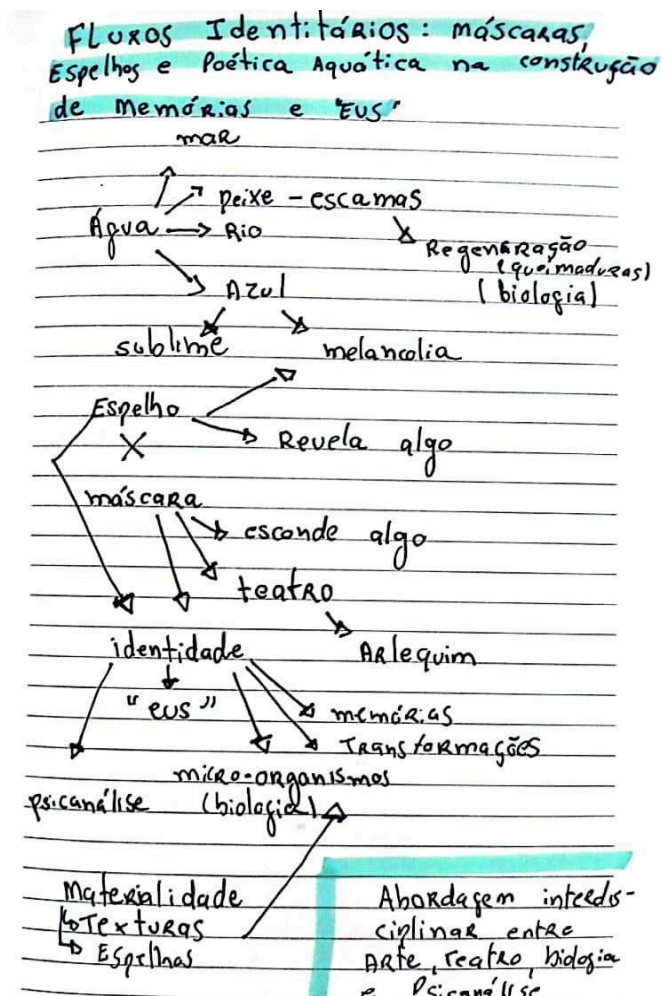 Fluxos Identitários: máscaras,
Espelhos e Poética Aquática na construção
de memórias e "EUS"
mar
peixe - escamas
Água Rio
Regeneração
(queimaduras)
(biologia)
Azul
sublime melancolia
Espelho
Revela algo
X
máscara
esconde algo
teatro
identidade Arlequim
"eus"
memórias
Transformações
micro-organismos
psicanálise (biologia)
Materialidade
Texturas
Espelhos
Abordagem interdis-
ciplinar entre
Arte, Teatro, biologia
e Psicanálise